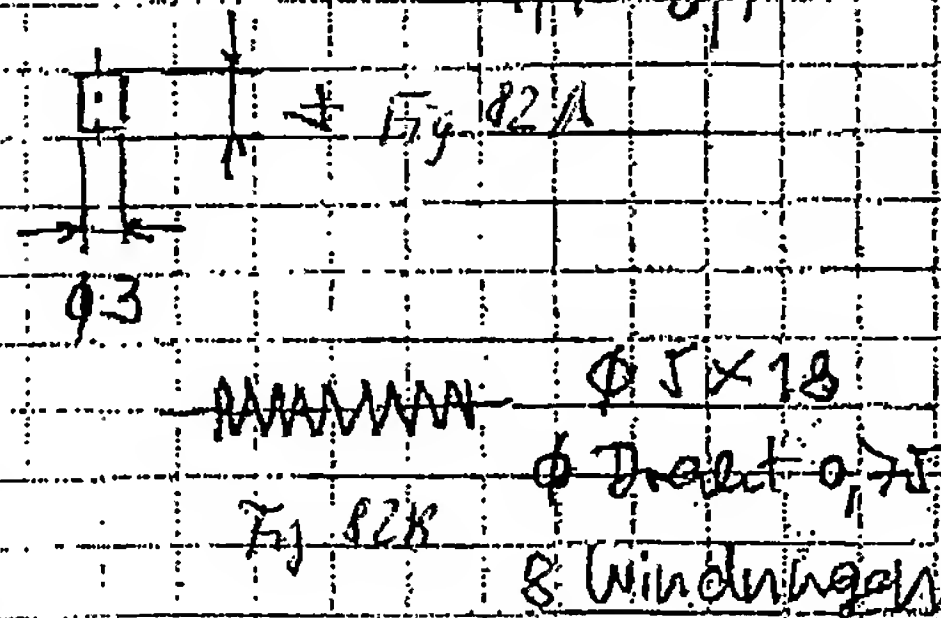 Fig 82A
φ3
φ 5 × 18
φ Draht 0,75
Fig 82B
8 Windungen